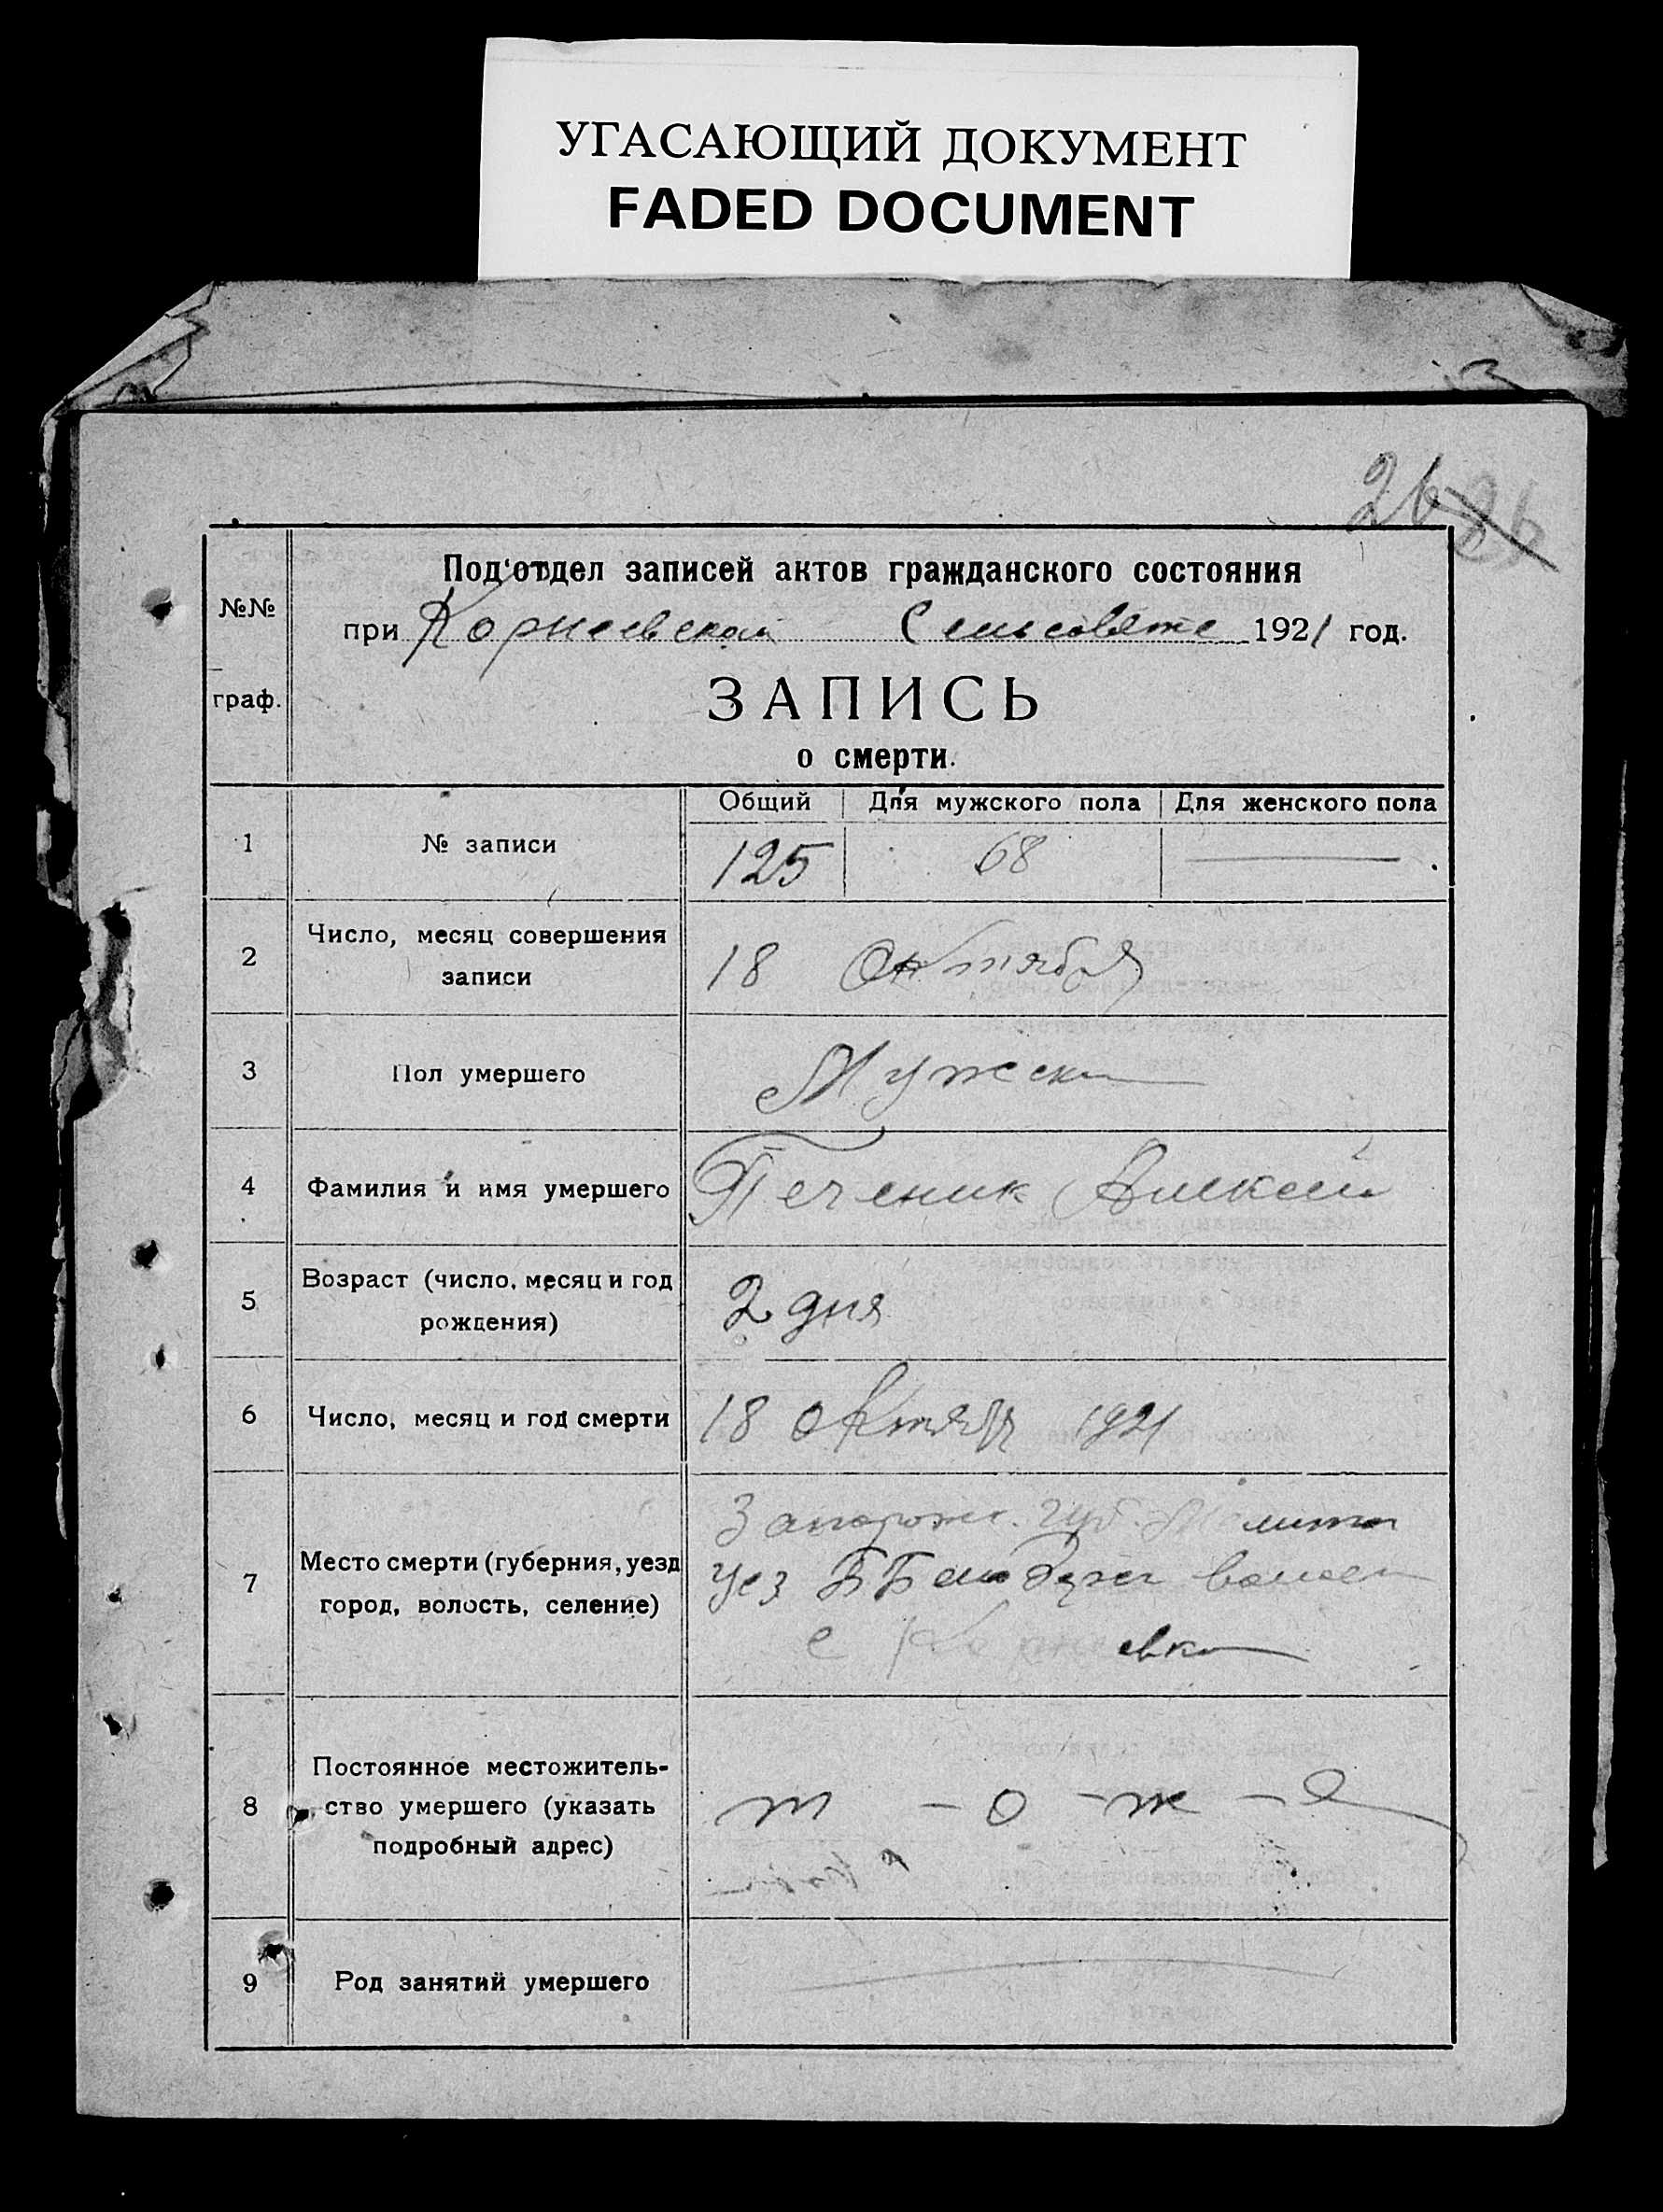 УГАСАЮЩИЙ ДОКУМЕНТ
FADED DOCUMENT
26 86
№№ граф.
Под'отдел записей актов гражданского состояния
при Корнеевской Сельсовяте 1921 год.
ЗАПИСЬ
о смерти.
Общий Для мужского пола Для женского пола
1 № записи 125 68 —
2 Число, месяц совершения
записи 18 Октября
3 Пол умершего Мужск
4 Фамилия и имя умершего Печеник Алексей
5 Возраст (число, месяц и год
рождения) 2 дня
6 Число, месяц и год смерти 18 Октябр 1921
7 Место смерти (губерния, уезд
город, волость, селение)
Запорожс. губ. Мелитоп
Уез ББелозерс волост
с Корнеевка
8 Постоянное местожитель-
ство умершего (указать
подробный адрес)
т - о - ж - е
9 Род занятий умершего